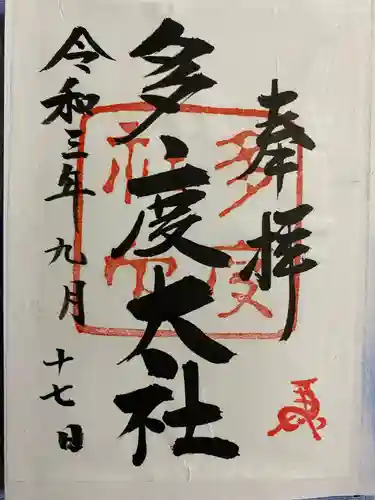 奉拝
多度大社
令和三年九月十七日
多度
社宮